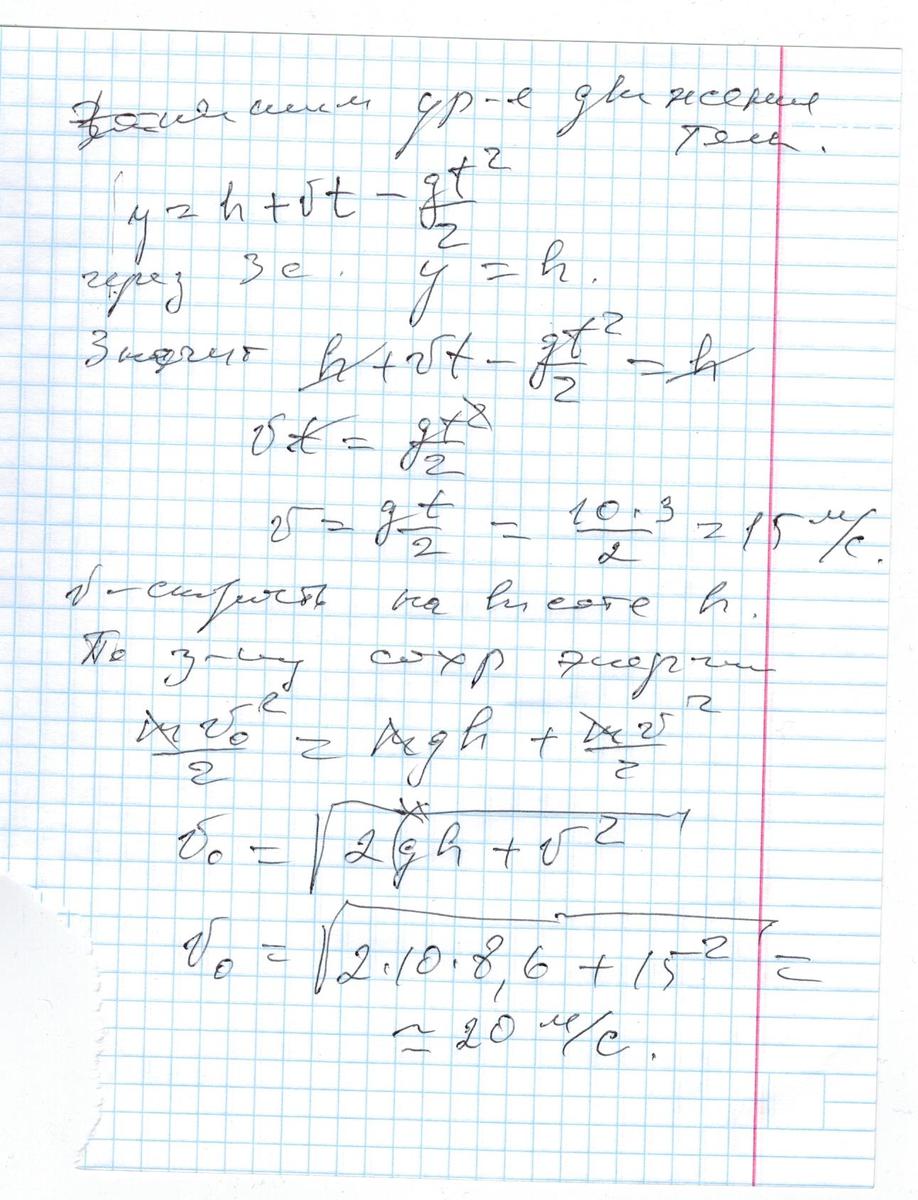 Запишем ур-е движения
тела.
y = h + vt - gt²/2
через 3 с. y = h.
Значит h + vt - gt²/2 = h
vt = gt²/2
v = g t/2 = 10·3/2 = 15 м/с.
v - скорость на высоте h.
По з-ну сохр энергии
mv₀²/2 = mgh + mv²/2
v₀ = √(2gh + v²)
v₀ = √(2·10·8,6 + 15²) =
≃ 20 м/с.